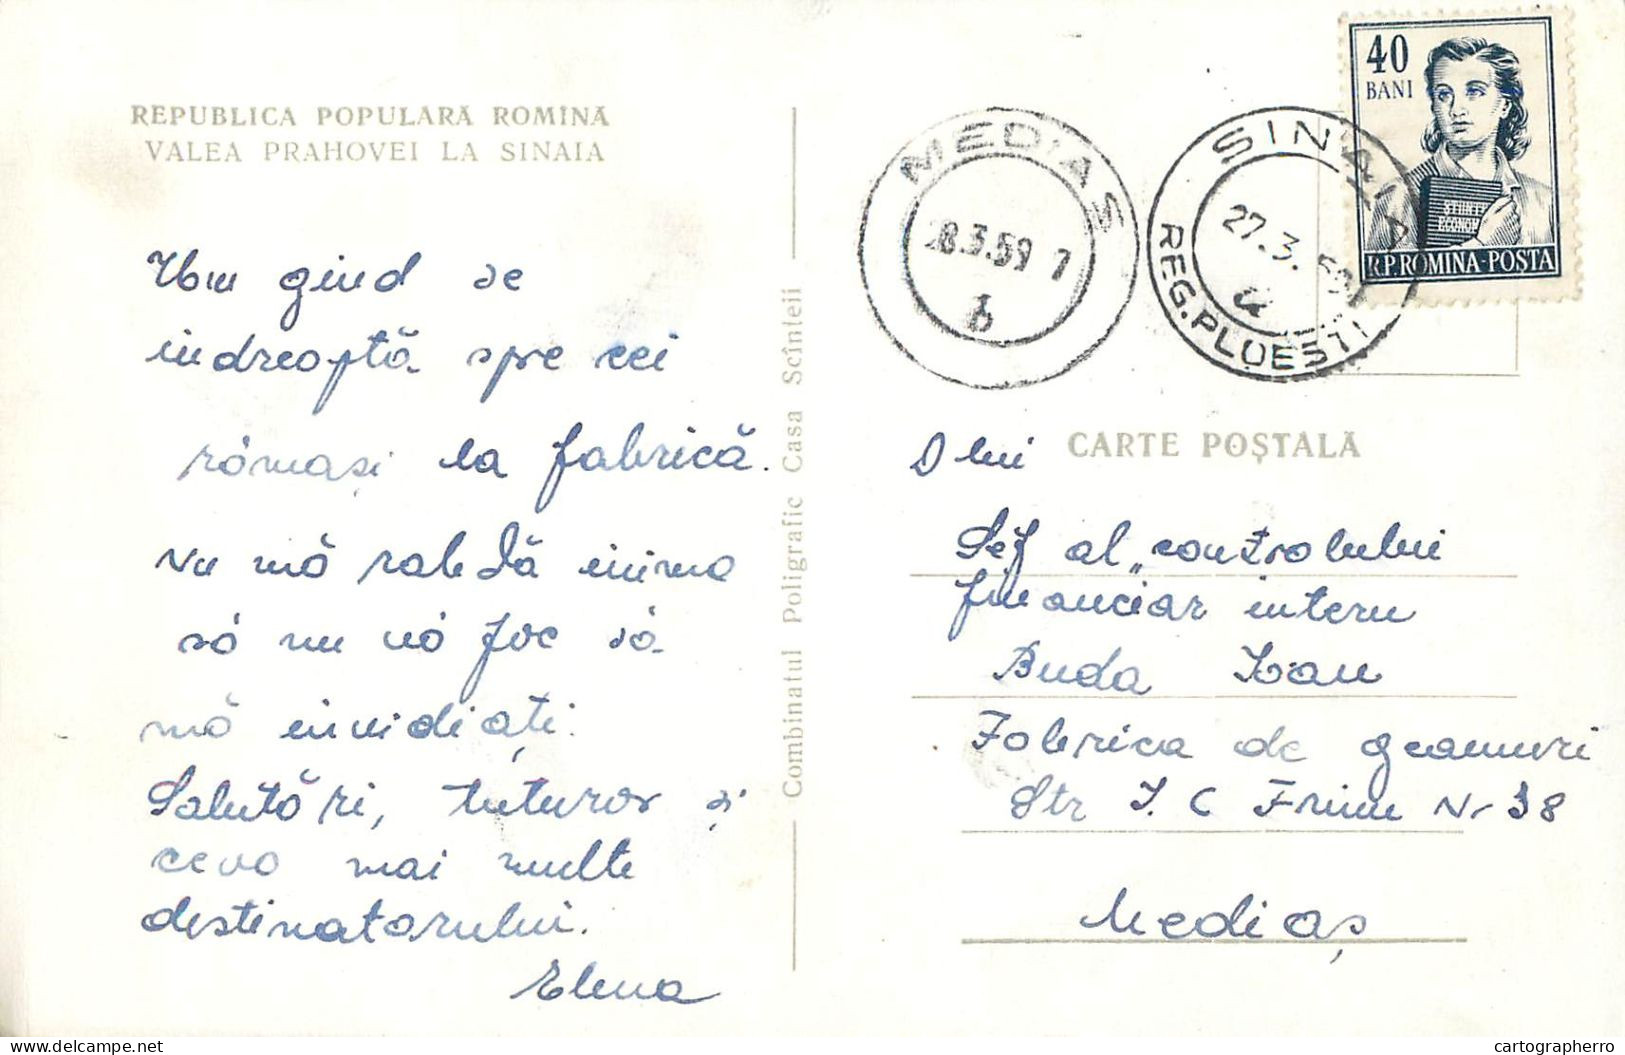 REPUBLICA POPULARĂ ROMINĂ
VALEA PRAHOVEI LA SINAIA
Un gind se
indreaptă spre cei
rămași la fabrică.
Nu mă rabdă inima
să nu vă fac să
mă invidiați.
Salutări, tuturor și
ceva mai multe
destinatorului.
Elena
Combinatul Poligrafic Casa Scînteii
MEDIAS
28.3.59 7
b
SINAIA
27.3.59
REG. PLOESTI
40
BANI
STIINTE
ECONOM
R.P.ROMINA-POSTA
CARTE POȘTALĂ
D lui
Șef al „controlului
financiar intern
Buda Ioan
Fabrica de geamuri
Str I. C Frimu Nr 38
Mediaș
delcampe.net
cartographerro